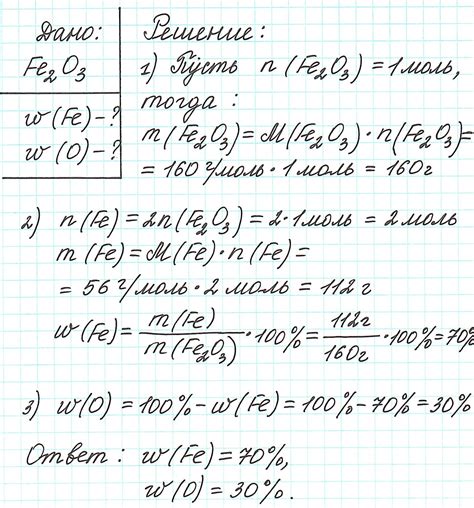 Дано:
Fe₂O₃
w(Fe)-?
w(O)-?
Решение:
1) Пусть n(Fe₂O₃)=1моль,
тогда:
m(Fe₂O₃)=M(Fe₂O₃)·n(Fe₂O₃)=
=160 г/моль·1 моль=160г
2) n(Fe)=2n(Fe₂O₃)=2·1моль=2моль
m(Fe)=M(Fe)·n(Fe)=
=56 г/моль·2 моль=112 г
w(Fe)=m(Fe)/m(Fe₂O₃)·100%=112г/160г·100%=70%
3) w(O)=100%-w(Fe)=100%-70%=30%
Ответ: w(Fe)=70%,
w(O)=30%.